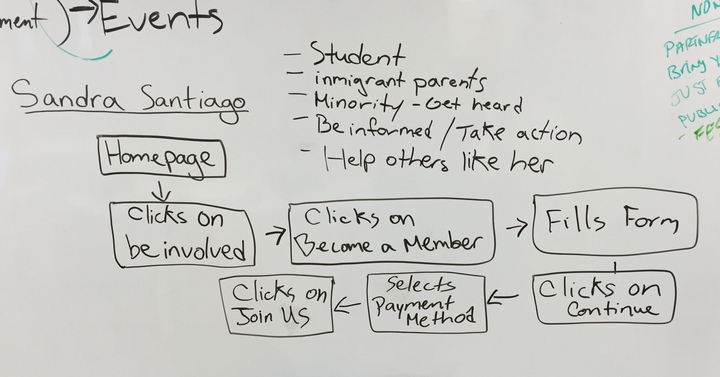 ment) → Events
Sandra Santiago
- Student
- inmigrant parents
- Minority - Get heard
- Be informed / Take action
- Help others like her
Homepage
Clicks on
be involved
Clicks on
Become a Member
Fills Form
Clicks on
Continue
Selects
Payment
Method
Clicks on
Join Us
PARTNER
Bring
JUST
PUBLI